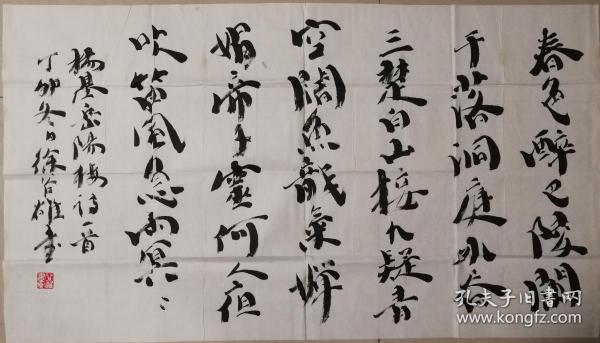 春色醉巴陵闌
干落洞庭水吞
三楚白山接九疑青
空闊魚龍氣嬋
娟帝子靈何人夜
吹笛風急雨冥〻
楊基岳陽樓詩一首
丁卯冬日徐雄書
孔夫子旧书网
www.kongfz.com